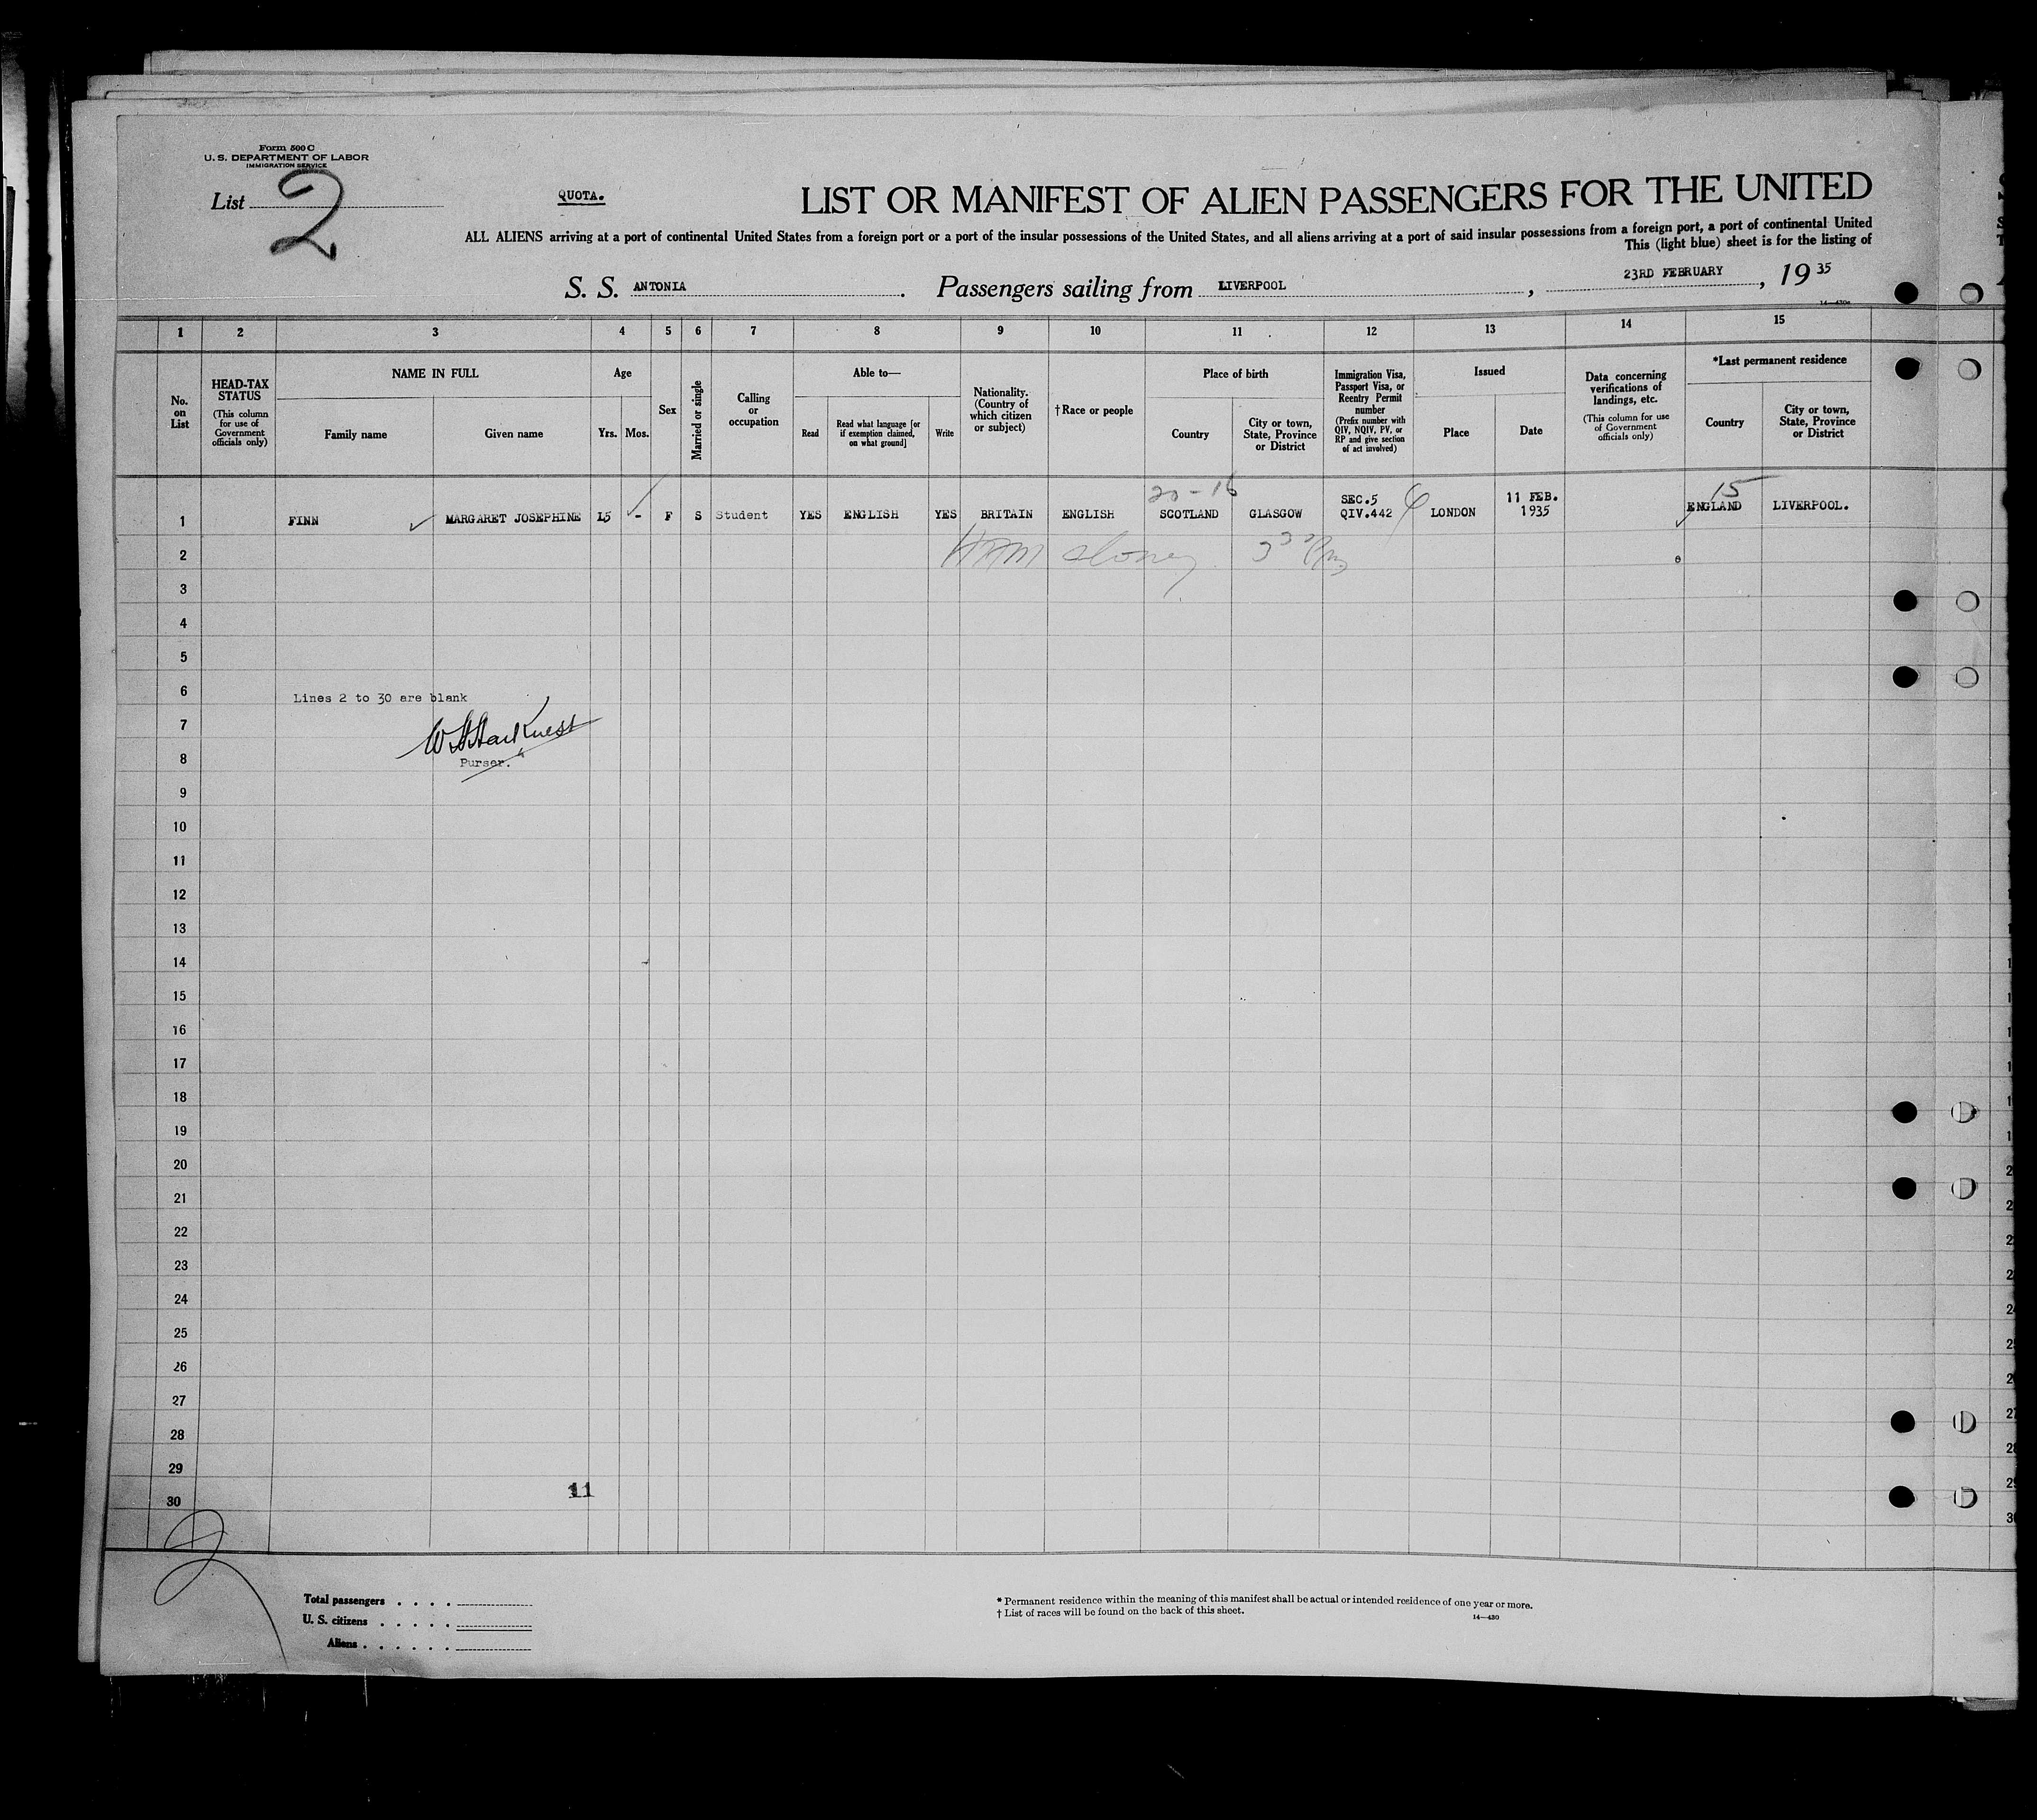 Form 500 C
U. S. DEPARTMENT OF LABOR
IMMIGRATION SERVICE
List 2
QUOTA.
LIST OR MANIFEST OF ALIEN PASSENGERS FOR THE UNITED
ALL ALIENS arriving at a port of continental United States from a foreign port or a port of the insular possessions of the United States, and all aliens arriving at a port of said insular possessions from a foreign port, a port of continental United
This (light blue) sheet is for the listing of
S. S. ANTONIA. Passengers sailing from LIVERPOOL, 23RD FEBRUARY, 19 35
1 2 3 4 5 6 7 8 9 10 11 12 13 14 15
No. on List
HEAD-TAX STATUS (This column for use of Government officials only)
NAME IN FULL
Family name
Given name
Age
Yrs.
Mos.
Sex
Married or single
Calling or occupation
Able to—
Read
Read what language [or if exemption claimed, on what ground]
Write
Nationality. (Country of which citizen or subject)
†Race or people
Place of birth
Country
City or town, State, Province or District
Immigration Visa, Passport Visa, or Reentry Permit number (Prefix number with QIV, NQIV, PV, or RP and give section of act involved)
Issued
Place
Date
Data concerning verifications of landings, etc. (This column for use of Government officials only)
*Last permanent residence
Country
City or town, State, Province or District
20-16
15
1 FINN MARGARET JOSEPHINE 15 - F S Student YES ENGLISH YES BRITAIN ENGLISH SCOTLAND GLASGOW SEC.5 QIV.442 LONDON 11 FEB. 1935 ENGLAND LIVERPOOL.
2
3
4
5
6
Lines 2 to 30 are blank
7
W Harkness
8
Purser.
9
10
11
12
13
14
15
16
17
18
19
20
21
22
23
24
25
26
27
28
29
11
30
2
Total passengers . . . .
U. S. citizens . . . . .
Aliens . . . . . .
* Permanent residence within the meaning of this manifest shall be actual or intended residence of one year or more.
† List of races will be found on the back of this sheet.
14—430